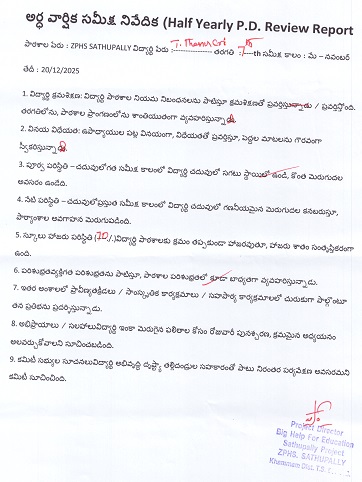 అర్ధ వార్షిక సమీక్ష నివేదిక (Half Yearly P.D. Review Report
పాఠశాల పేరు : ZPHS SATHUPALLY విద్యార్థి పేరు:------------------ తరగతి :7th సమీక్ష కాలం : మే – నవంబర్
తేదీ : 20/12/2025
1. క్రమశిక్షణ: విద్యార్థి పాఠశాల నియమ నిబంధనలను పాటిస్తూ క్రమశిక్షణతో ప్రవర్తిస్తున్నాడు / ప్రవర్తిస్తోంది.
తరగతిలోను, పాఠశాల ప్రాంగణంలోను శాంతియుతంగా వ్యవహరిస్తున్నాడు
2. వినయ విధేయత: ఉపాధ్యాయుల పట్ల వినయంగా, విధేయతతో ప్రవర్తిస్తూ, పెద్దల మాటలను గౌరవంగా
స్వీకరిస్తున్నాడు
3. పూర్వ పరిస్థితి – చదువులోగత సమీక్ష కాలంలో విద్యార్థి చదువులో సగటు స్థాయిలో ఉండి, కొంత మెరుగుదల
అవసరం ఉండేది.
4. నేటి పరిస్థితి – చదువులోప్రస్తుత సమీక్ష కాలంలో విద్యార్థి చదువులో గణనీయమైన మెరుగుదల కనబరుస్తూ,
పాఠ్యాంశాల అవగాహన మెరుగుపడింది.
5. స్కూలు హాజరు పరిస్థితి (70/.)విద్యార్థి పాఠశాలకు క్రమం తప్పకుండా హాజరవుతూ, హాజరు శాతం సంతృప్తికరంగా
ఉంది.
6. పరిశుభ్రతవ్యక్తిగత పరిశుభ్రతను పాటిస్తూ, పాఠశాల పరిశుభ్రతలో కూడా బాధ్యతగా వ్యవహరిస్తున్నాడు.
7. ఇతర అంశాలలో ప్రావీణ్యతక్రీడలు / సాంస్కృతిక కార్యక్రమాలు / సహపాఠ్య కార్యక్రమాలలో చురుకుగా పాల్గొంటూ
తన ప్రతిభను ప్రదర్శిస్తున్నాడు.
8. అభిప్రాయాలు / సలహాలువిద్యార్థి ఇంకా మెరుగైన ఫలితాల కోసం రోజువారీ పునశ్చరణ, క్రమమైన అధ్యయనం
అలవర్చుకోవాలని సూచించబడింది.
9. కమిటీ సభ్యుల సూచనలువిద్యార్థి అభివృద్ధి దృష్ట్యా తల్లిదండ్రుల సహకారంతో పాటు నిరంతర పర్యవేక్షణ అవసరమని
కమిటీ సూచించింది.
Project Director
Big Help For Education
Sathupally Project
ZPHS. SATHUPALLY
Khammam Dist. T.S.